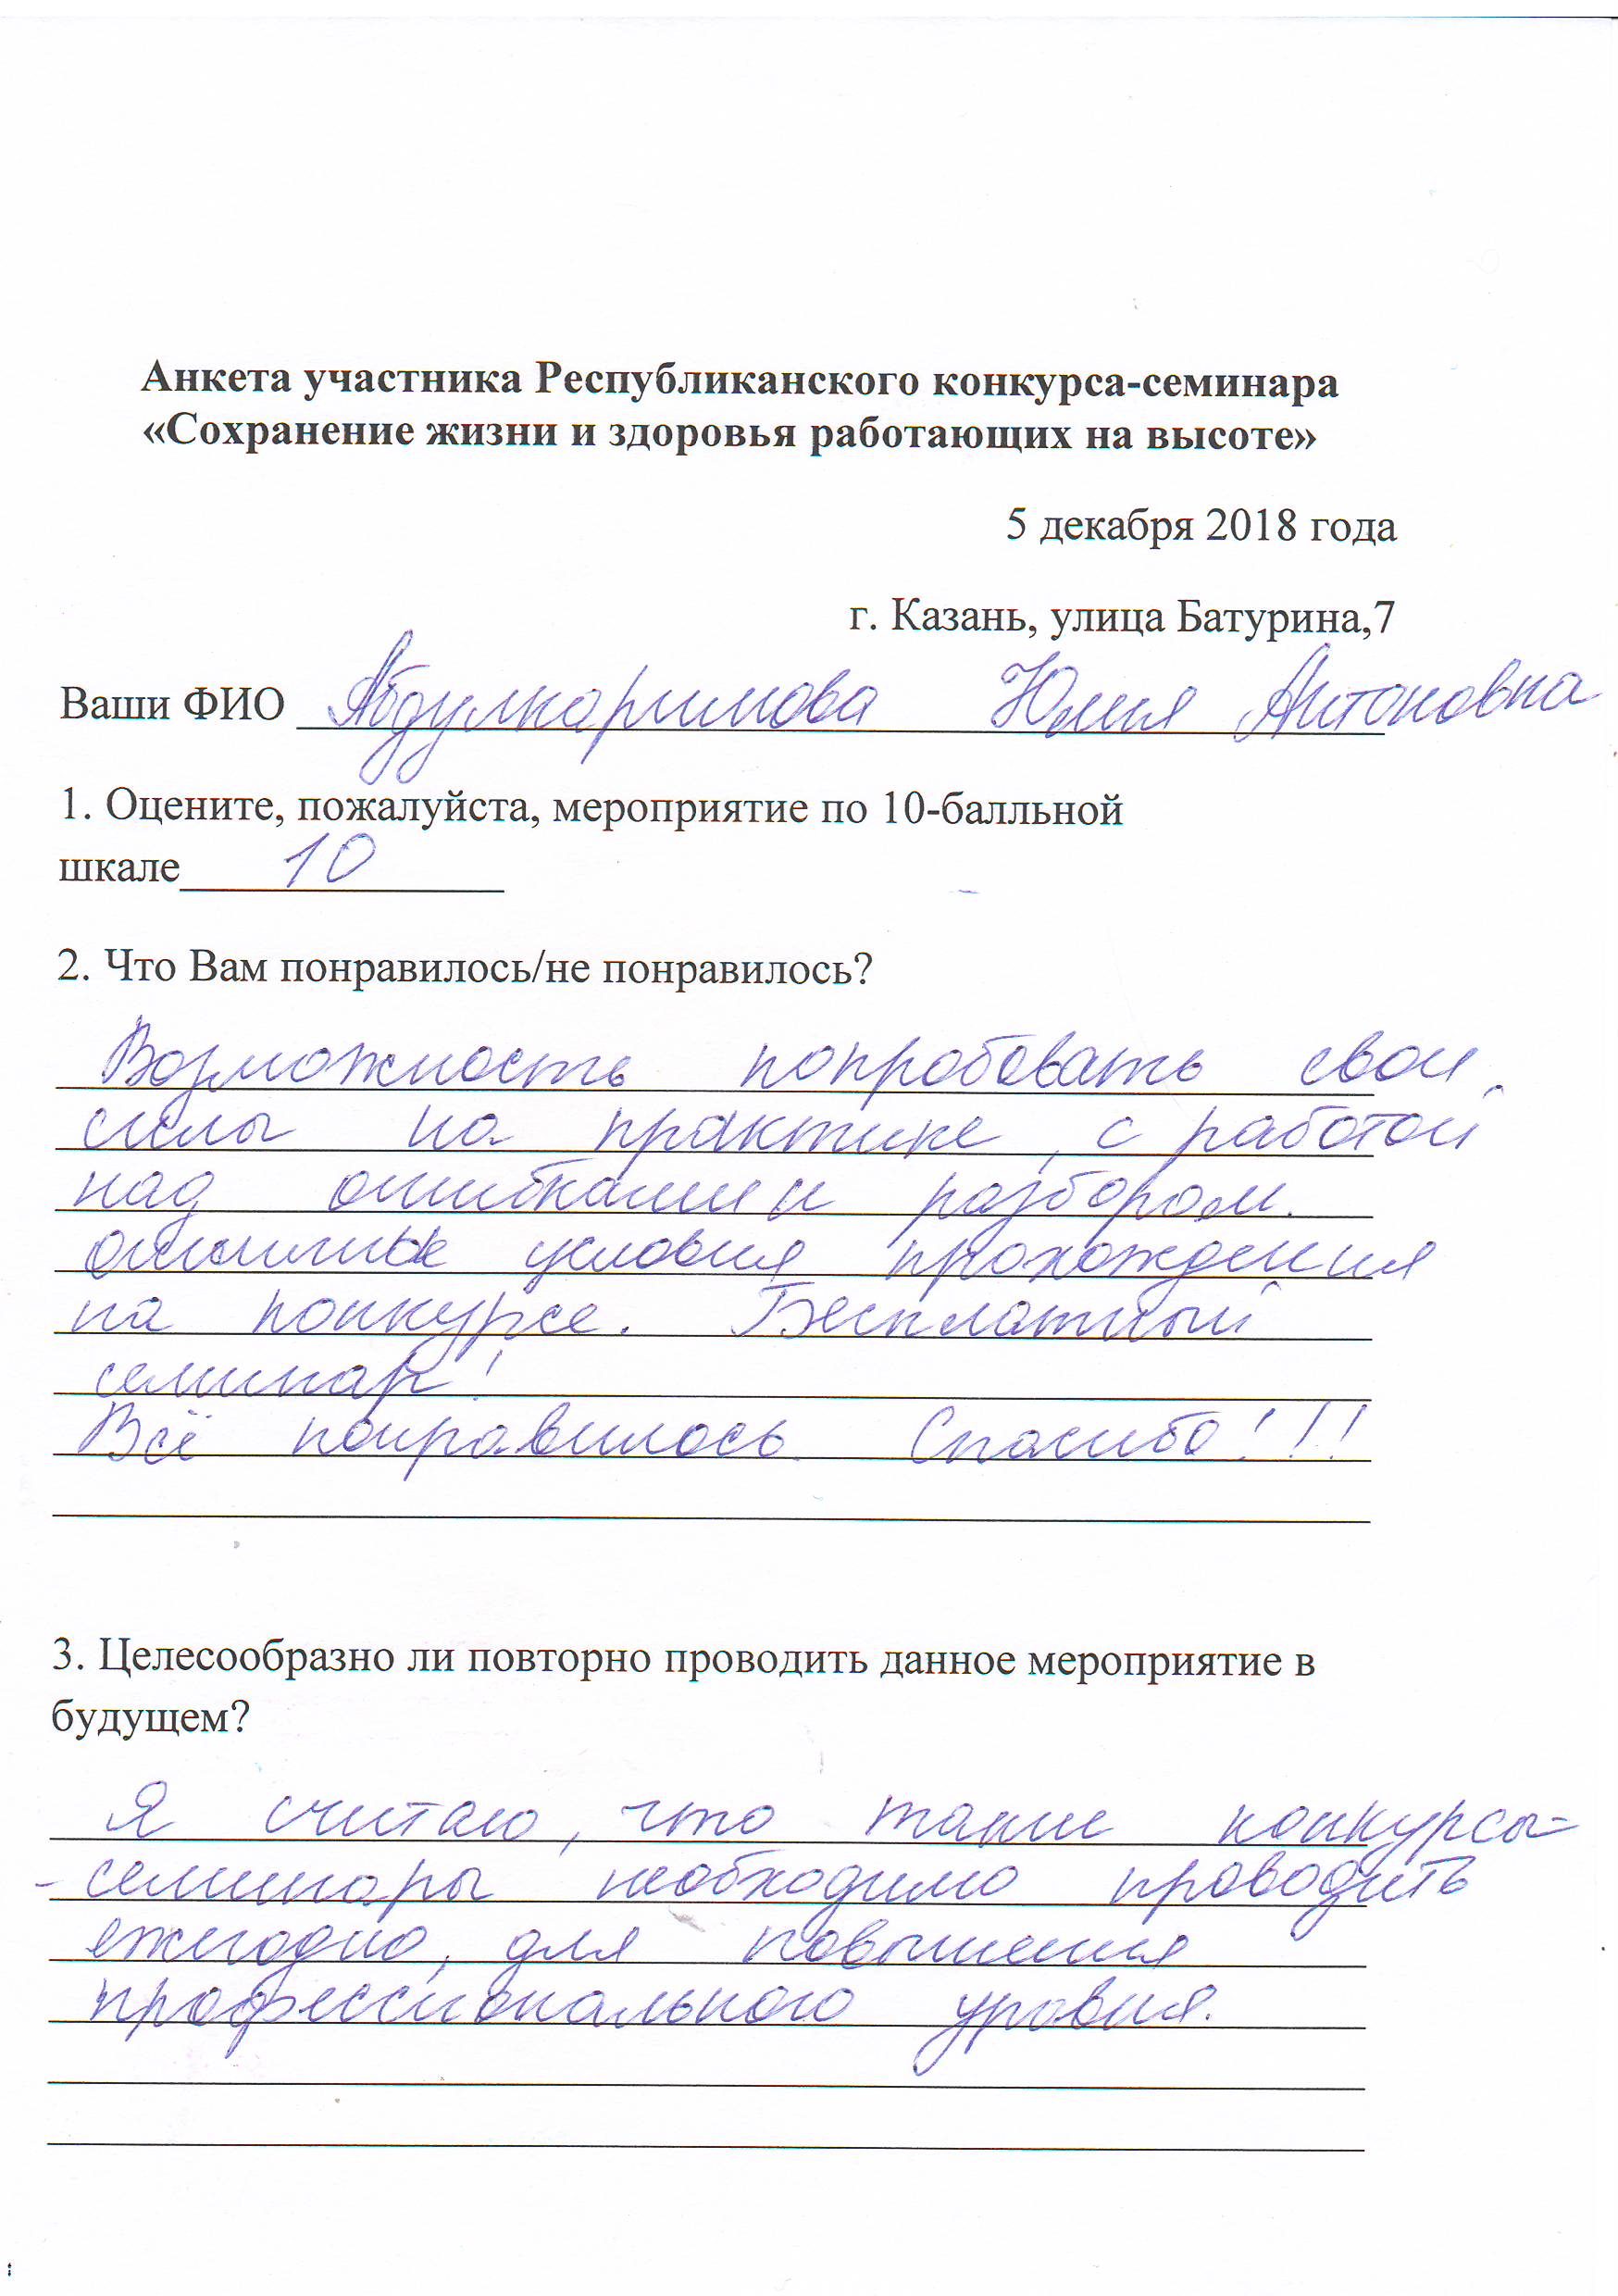 Анкета участника Республиканского конкурса-семинара
«Сохранение жизни и здоровья работающих на высоте»
5 декабря 2018 года
г. Казань, улица Батурина,7
Ваши ФИО Абдулкаримова Юлия Антоновна
1. Оцените, пожалуйста, мероприятие по 10-балльной
шкале 10
2. Что Вам понравилось/не понравилось?
Возможность попробовать свои
силы на практике, с работой
над ошибками и разбором.
условия прохождения
на конкурсе. Бесплатный
семинар!
Всё понравилось. Спасибо!!!
3. Целесообразно ли повторно проводить данное мероприятие в
будущем?
Я считаю, что такие конкурсы-
-семинары необходимо проводить
ежегодно, для повышения
профессионального уровня.